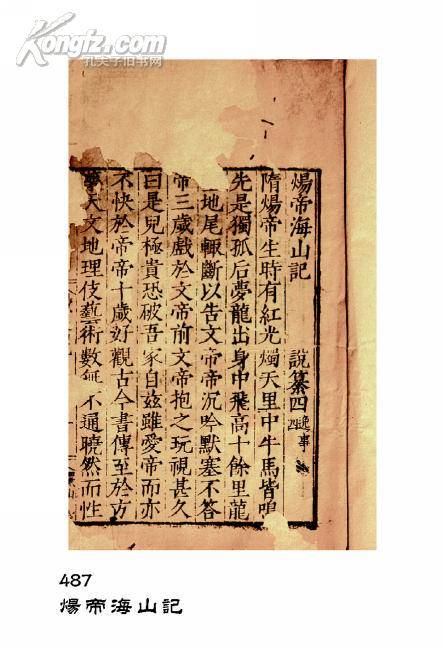 Kongfz.com
孔夫子旧书网
煬帝海山記 說纂四 逸事四
隋煬帝生時有紅光燭天里中牛馬皆鳴
先是獨孤后夢龍出身中飛高十餘里龍
地尾輙斷以告文帝帝沉吟默塞不答
帝三歲戲於文帝前文帝抱之玩視甚久
曰是兒極貴恐破吾家自兹雖愛帝而亦
不快於帝帝十歲好觀古今書傳至於方
藥天文地理伎藝術數無不通曉然而性
487
煬帝海山記